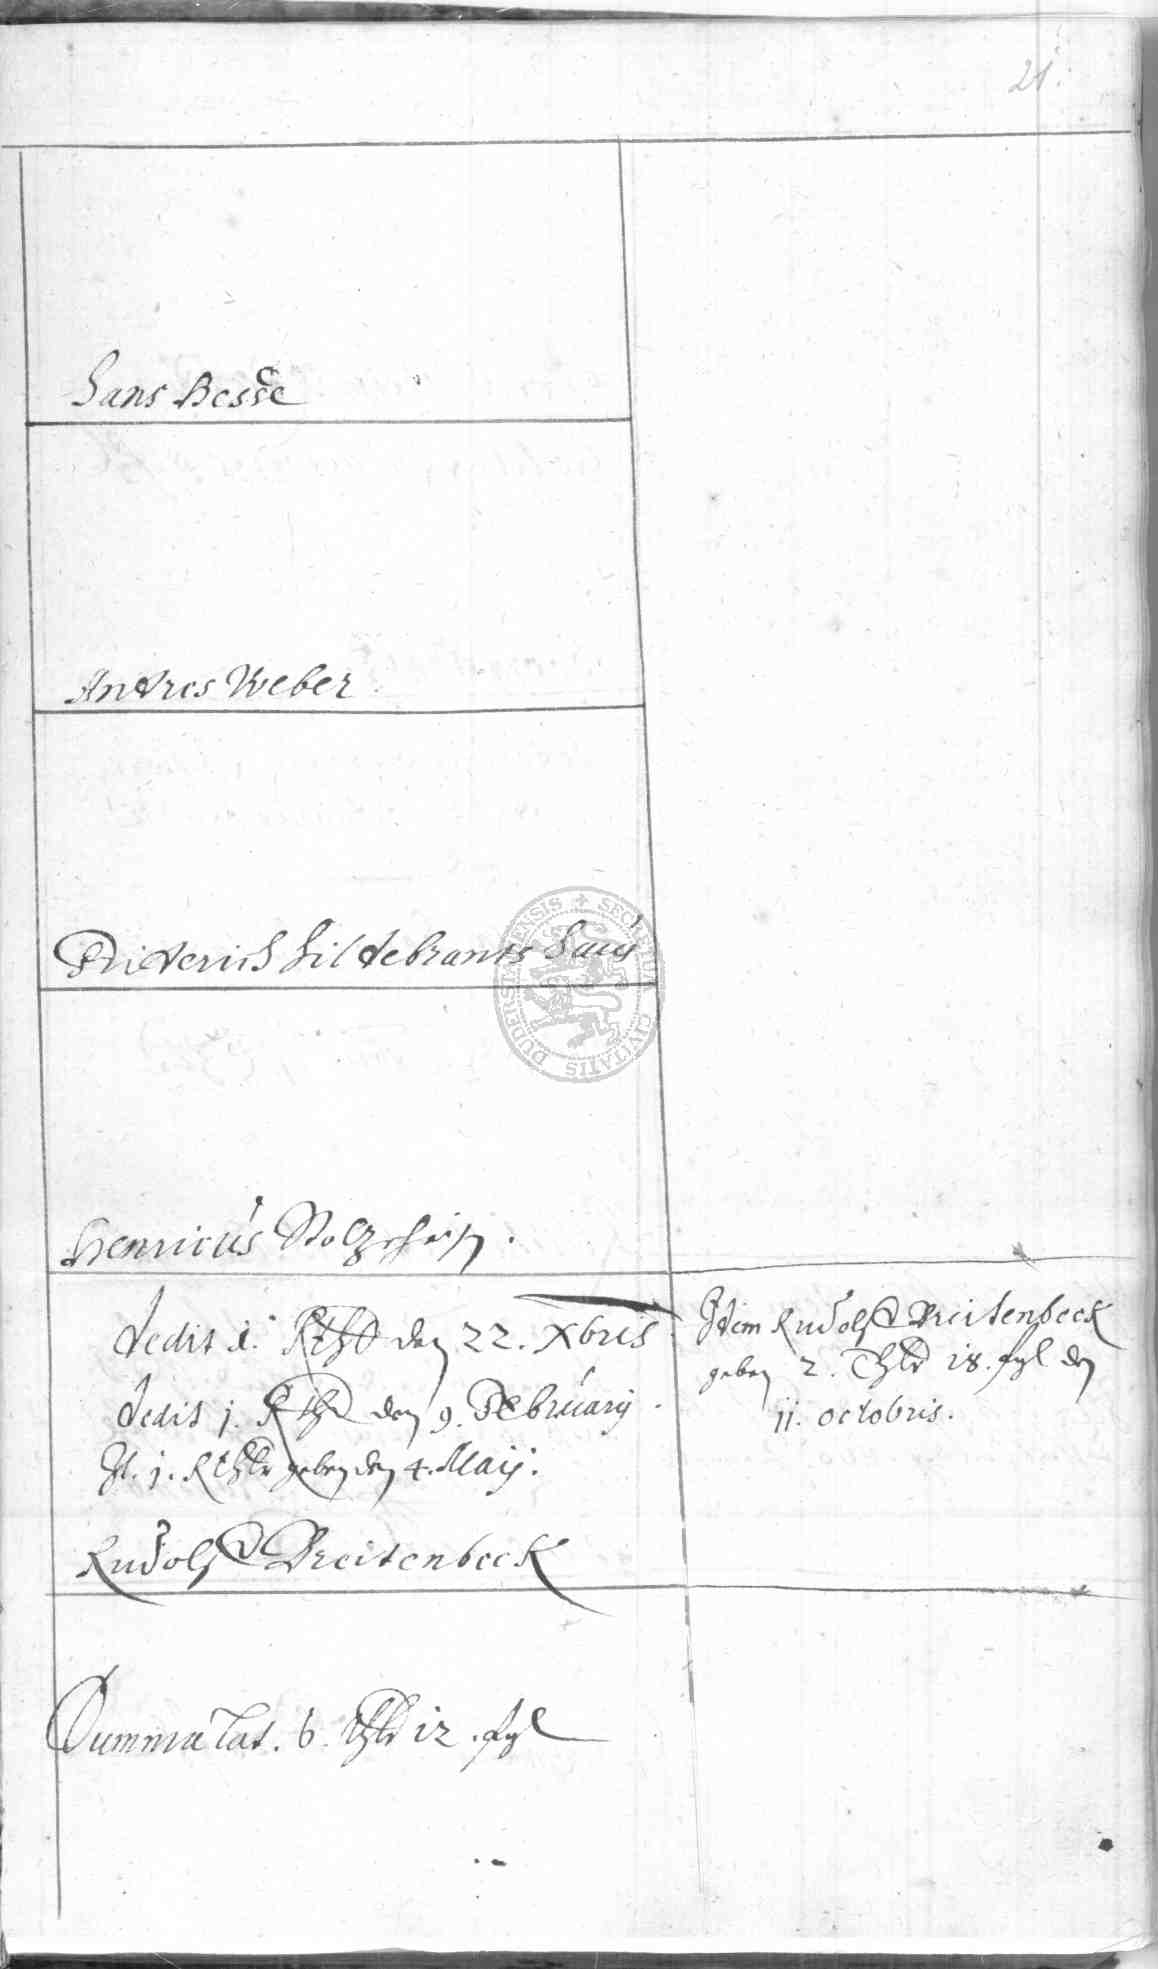 21.
Hans Besse
Andres Weber
Friderich Hildebrants Hauß
Henricus
dedit 1. Rthlr den 22. Xbris
dedit j. Rthlr den 9. Februarij.
It. j. Rthlr geben den 4. Maij.
Rudolff Breitenbeck
Item Rudolff Breitenbeck
geben 2. Thlr 18. ßgl den
11. octobris.
Summa Lat. 6. thlr 12. ßgl
SECRETUM CIVITATIS DUDERSTATENSIS